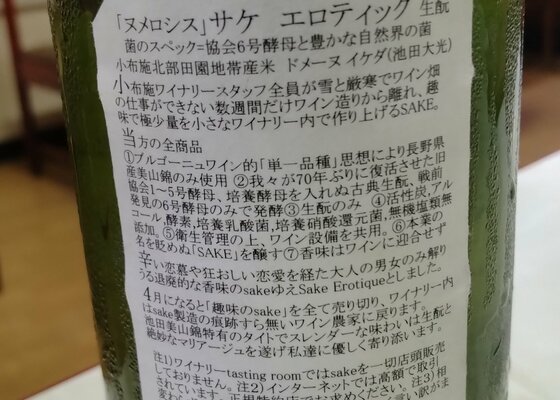 「ヌメロシス」サケ エロティック 生酛
菌のスペック=協会6号酵母と豊かな自然界の菌
小布施北部田園地帯産米 ドメーヌ イケダ(池田大光)
小布施ワイナリースタッフ全員が雪と厳寒でワイン畑
の仕事ができない数週間だけワイン造りから離れ、趣
味で極少量を小さなワイナリー内で作り上げるSAKE。
当方の全商品
①ブルゴーニュワイン的「単一品種」思想により長野県
産美山錦のみ使用 ②我々が70年ぶりに復活させた旧
協会1~5号酵母、培養酵母を入れぬ古典生酛、戦前
発見の6号酵母のみで発酵③生酛のみ ④活性炭,アル
コール,酵素,培養乳酸菌,培養硝酸還元菌,無機塩類無
添加。⑤衛生管理の上、ワイン設備を共用。⑥本業の
名を貶めぬ「SAKE」を醸す⑦香味はワインに迎合せず
辛い恋慕や狂おしい恋愛を経た大人の男女のみ解り
うる退廃的な香味のsakeゆえSake Erotiqueとしました。
4月になると「趣味のsake」を全て売り切り、ワイナリー内
はsake製造の痕跡すら無いワイン農家に戻ります。
池田美山錦特有のタイトでスレンダーな味わいは生酛と
絶妙なマリアージュを遂げ私達に優しく寄り添います。
注1)ワイナリーtasting roomではsakeを一切店頭販売
しておりません。注2)インターネットでは高額で取引
されています。正規特約店でお求めください。注3)相